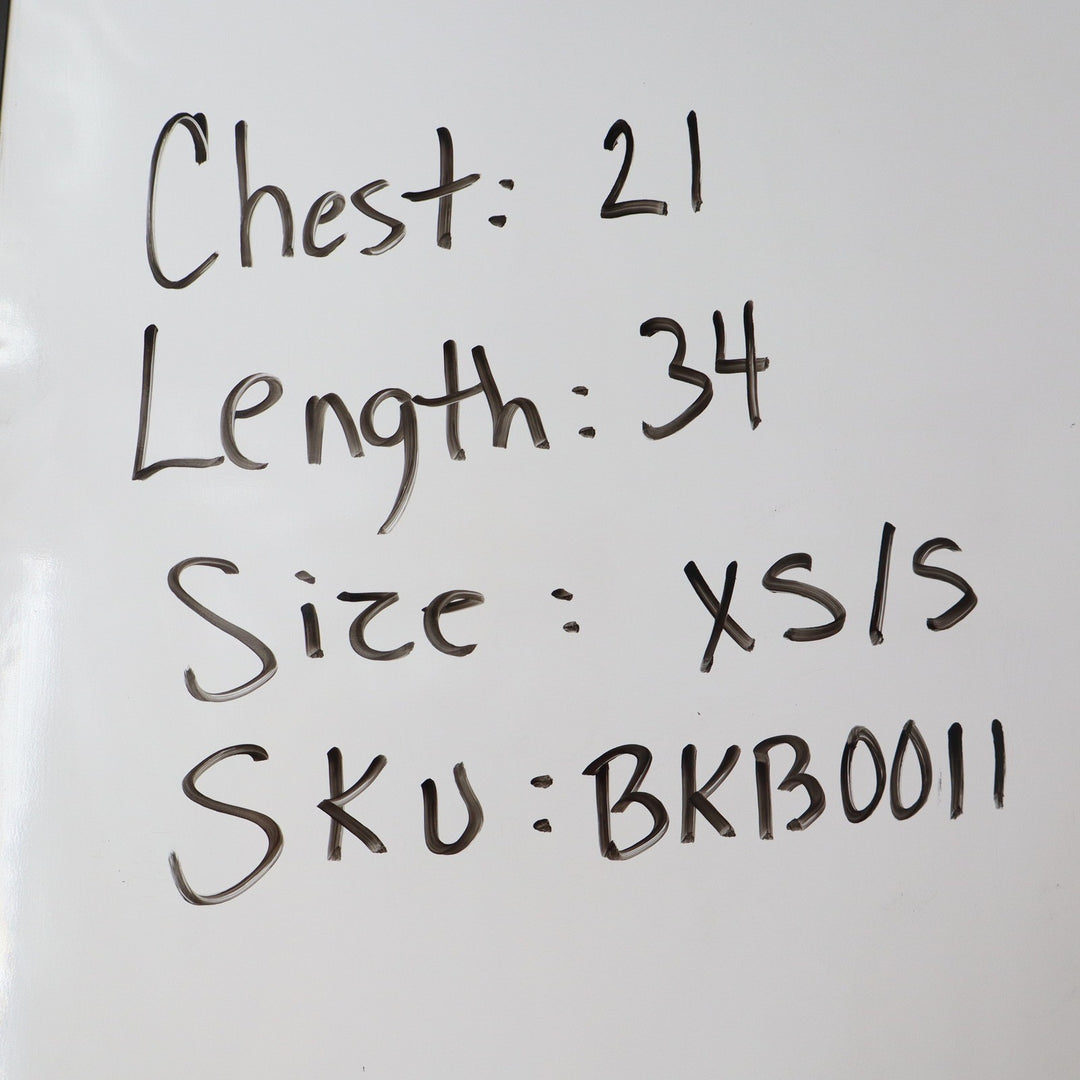 Chest: 21
Length: 34
Size: XS/S
SKU: BKB0011